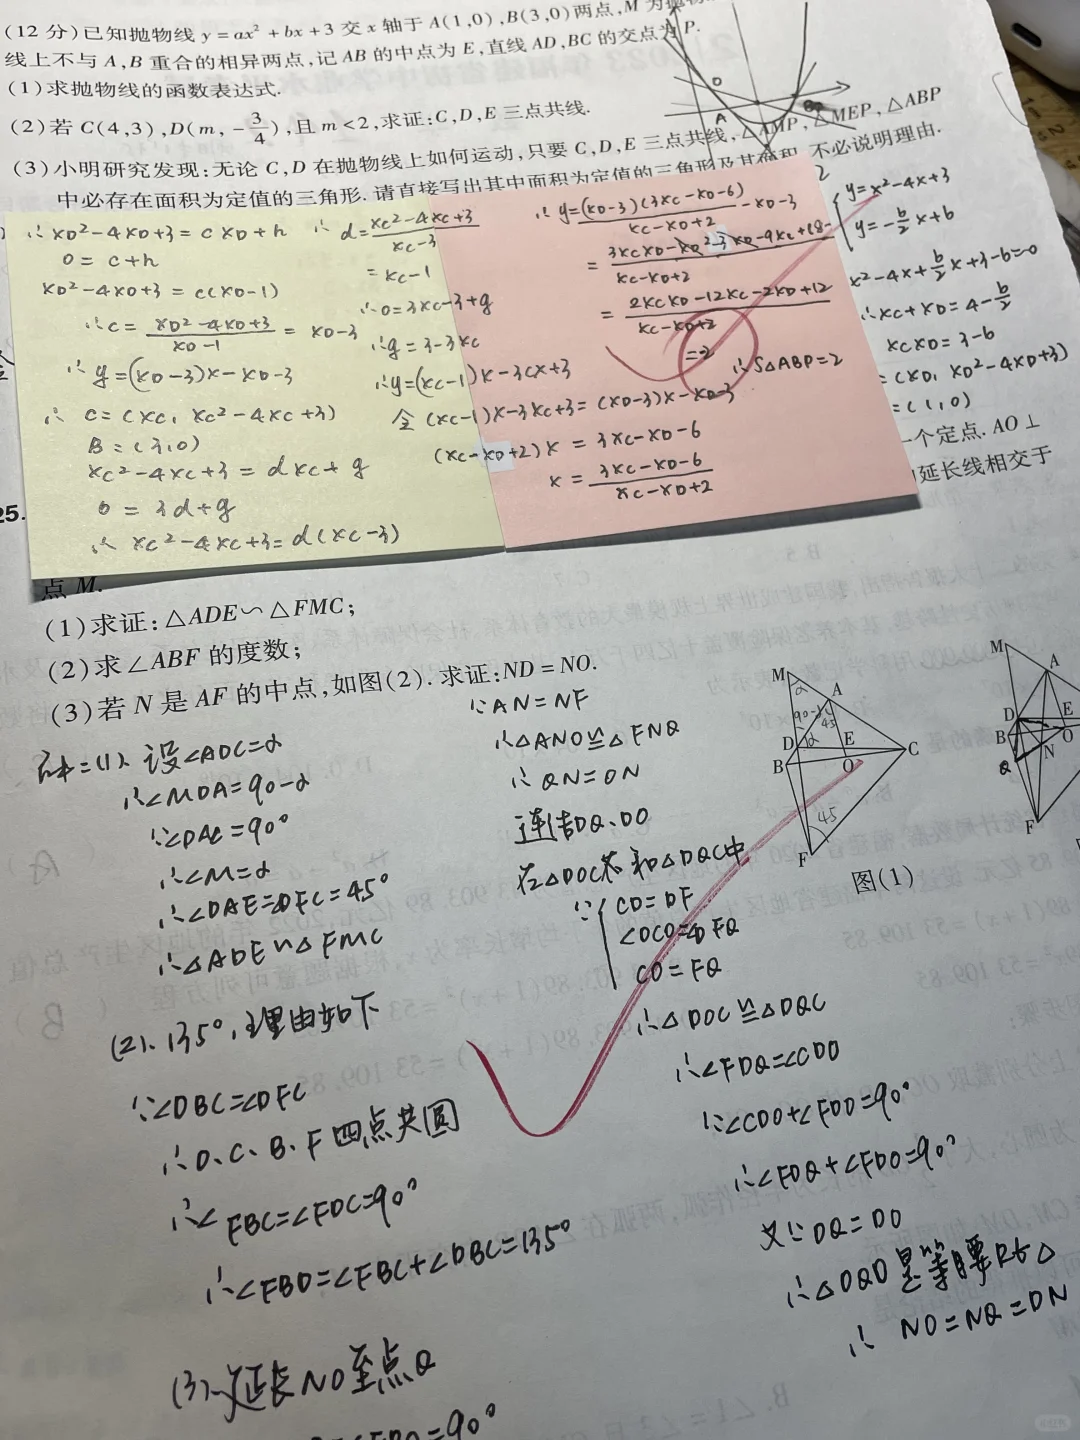 (12 分)已知抛物线 y=ax²+bx+3 交 x 轴于 A(1,0),B(3,0)两点,M 为抛物
线上不与 A,B 重合的相异两点,记 AB 的中点为 E,直线 AD,BC 的交点为 P.
(1)求抛物线的函数表达式.
(2)若 C(4,3),D(m,-3/4),且 m<2,求证:C,D,E 三点共线.
(3)小明研究发现:无论 C,D 在抛物线上如何运动,只要 C,D,E 三点共线,△AMP,△MEP,△ABP
中必存在面积为定值的三角形.请直接写出其中面积为定值的三角形及其面积,不必说明理由.
O
A
∴ xD²-4xD+3=cxD+h
0=c+h
xD²-4xD+3=c(xD-1)
∴c=(xD²-4xD+3)/(xD-1)=xD-3
∴y=(xD-3)x-xD-3
∴ C=(xC, xC²-4xC+3)
B=(3,0)
xC²-4xC+3=dxC+g
0=3d+g
∴ xC²-4xC+3=d(xC-3)
∴ d=(xC²-4xC+3)/(xC-3)
=xC-1
∴0=3xC-3+g
∴g=3-3xC
∴y=(xC-1)x-3cx+3
令 (xC-1)x-3xC+3=(xD-3)x-xD-3
(xC-xD+2)x=3xC-xD-6
x=(3xC-xD-6)/(xC-xD+2)
∴ y=(xD-3)(3xC-xD-6)/(xC-xD+2)-xD-3
=(2xCxD-12xC-2xD+12)/(xC-xD+2)
=2
∴S△ABP=2
2
y=x²-4x+3
y=-b/2x+b
x²-4x+b/2x+3-b=0
∴xC+xD=4-b/2
xCxD=3-b
=(xD, xD²-4xD+3)
=(1,0)
一个定点. AO⊥
延长线相交于
25.
点 M.
(1)求证:△ADE∽△FMC;
(2)求∠ABF 的度数;
(3)若 N 是 AF 的中点,如图(2).求证:ND=NO.
(1)、设∠ADC=α
∴∠MDA=90-α
∵∠DAC=90°
∴∠M=α
∴∠DAE=∠DFC=45°
∴△ADE∽△FMC
(2)、135°,理由如下
∵∠DBC=∠DFC
∴D、C、B、F四点共圆
∴∠FBC=∠FDC=90°
∴∠FBD=∠FBC+∠DBC=135°
(3)、延长NO至点Q
=90°
∵AN=NF
∴△ANO≌△FNQ
∴QN=ON
连结DQ、DO
在△DOC和△DQC中
∵ CD=DF
∠DCO=∠DFQ
CO=FQ
∴△DOC≌△DQC
∴∠FDQ=∠CDO
∵∠CDO+∠FDO=90°
∴∠FDQ+∠FDO=90°
又∵DQ=DO
∴△DQO是等腰Rt△
∴ NO=NQ=DN
M
α
A
90-α
45
D
α
E
C
B
O
45
F
图(1)
M
A
D
E
B
O
Q
N
F